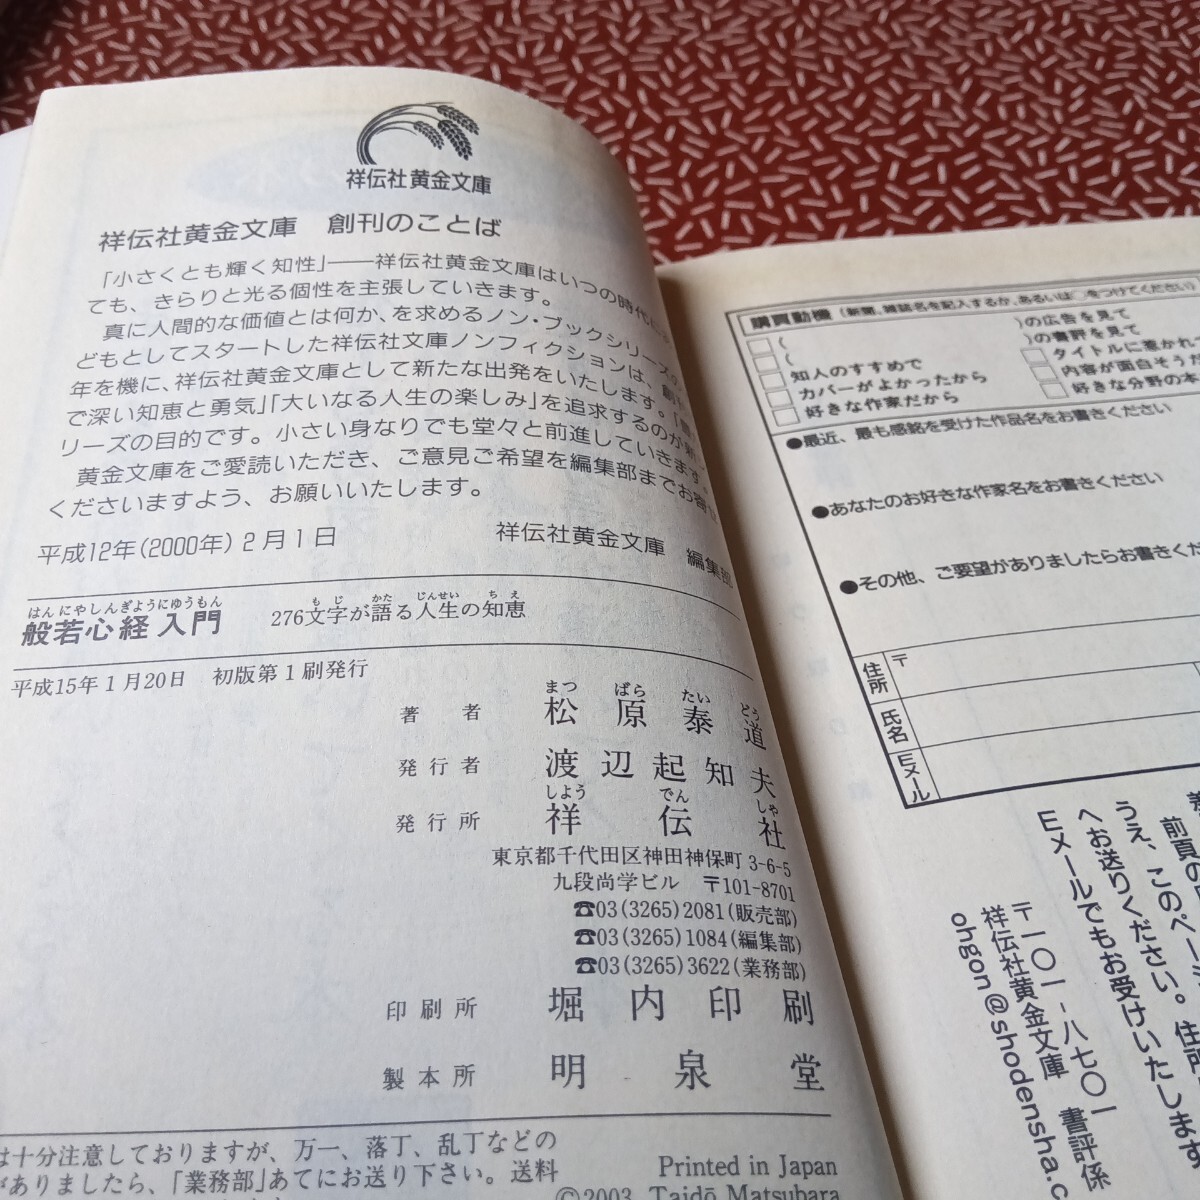 祥伝社黄金文庫
祥伝社黄金文庫 創刊のことば
「小さくとも輝く知性」──祥伝社黄金文庫はいつの時代に
ても、きらりと光る個性を主張していきます。
真に人間的な価値とは何か、を求めるノン・ブックシリーズの
どもとしてスタートした祥伝社文庫ノンフィクションは、創
年を機に、祥伝社黄金文庫として新たな出発をいたします。「
で深い知恵と勇気」「大いなる人生の楽しみ」を追求するのが新
リーズの目的です。小さい身なりでも堂々と前進していきます。
黄金文庫をご愛読いただき、ご意見ご希望を編集部までお寄せ
くださいますよう、お願いいたします。
平成12年(2000年)2月1日
祥伝社黄金文庫 編集部
はんにやしんぎようにゆうもん
般若心経入門
276文字が語る人生の知恵
もじ かた じんせい ちえ
平成15年1月20日 初版第1刷発行
まつ ばら たい どう
著者 松原泰道
発行者 渡辺起知夫
しよう でん しや
発行所 祥伝社
東京都千代田区神田神保町3-6-5
九段尚学ビル 〒101-8701
☎03(3265)2081(販売部)
☎03(3265)1084(編集部)
☎03(3265)3622(業務部)
印刷所 堀内印刷
製本所 明泉堂
は十分注意しておりますが、万一、落丁、乱丁などの
がありましたら、「業務部」あてにお送り下さい。送料
Printed in Japan
©2003 Taidō Matsubara
購買動機(新聞、雑誌名を記入するか、あるいは○をつけてください)
( )の広告を見て
( )の書評を見て
知人のすすめで
タイトルに惹かれて
カバーがよかったから
内容が面白そうだ
好きな作家だから
好きな分野の本
●最近、最も感銘を受けた作品名をお書きください
●あなたのお好きな作家名をお書きください
●その他、ご要望がありましたらお書きくだ
住所 〒
氏名
Eメール
前頁の
うえ、このページ
へお送りください。住所
Eメールでもお受けいたします
〒一〇一-八七〇一
祥伝社黄金文庫 書評係
ohgon@shodensha.c